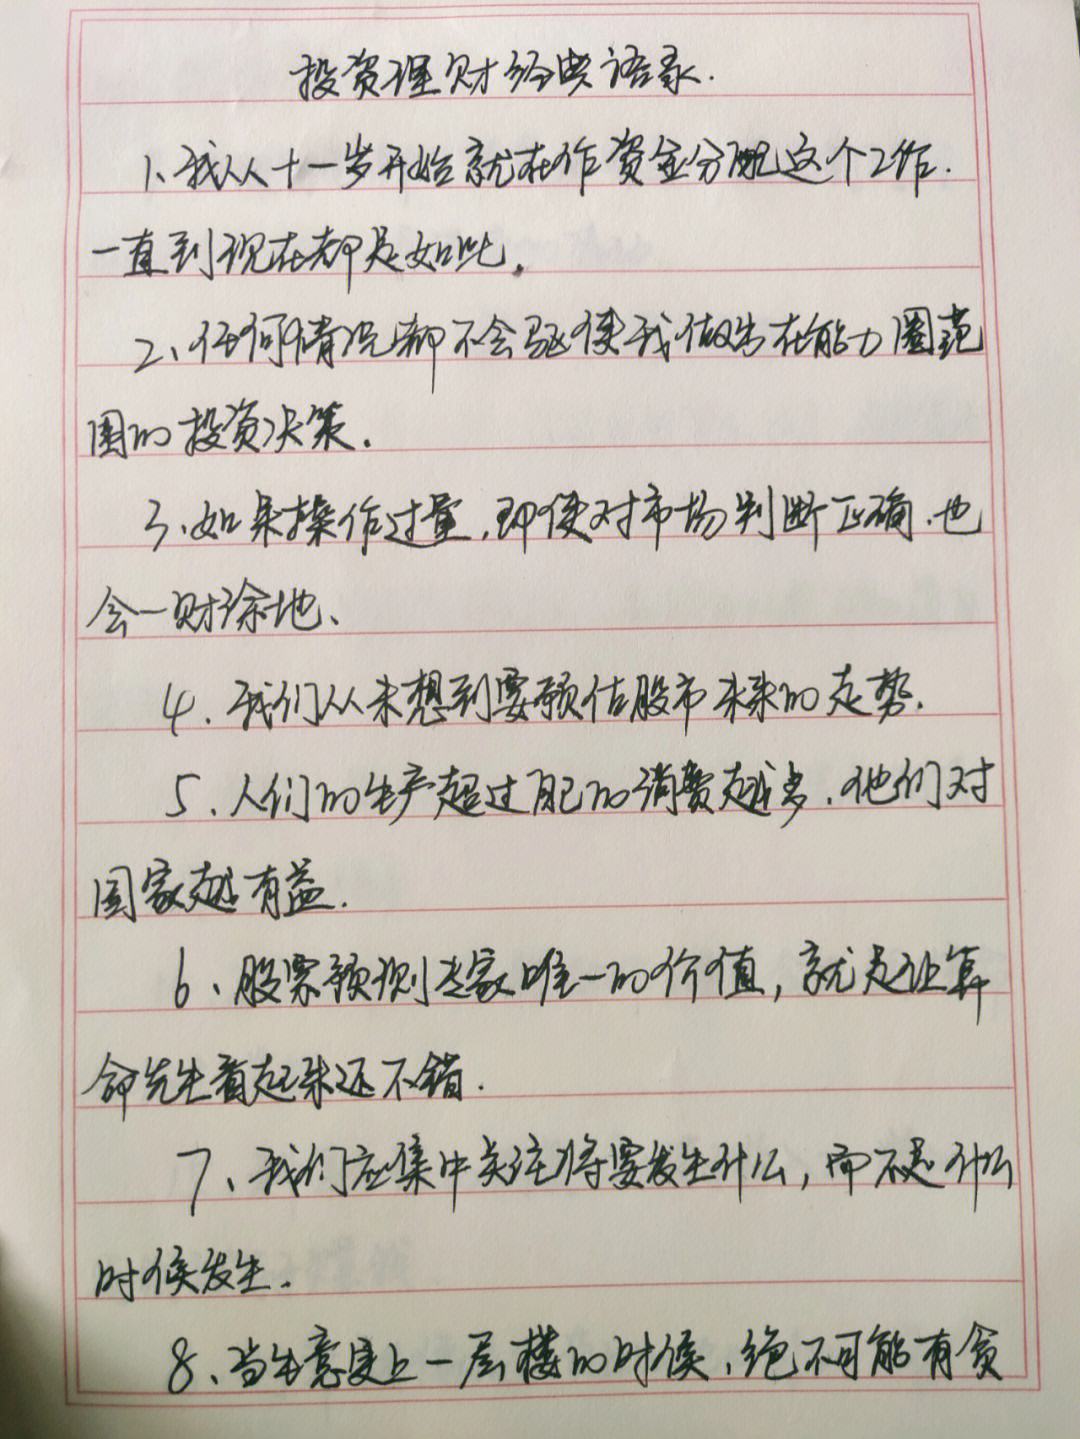 投资理财经典语录.
1、我从十一岁开始就在作资金分配这个工作.
一直到现在都是如此.
2、任何情况都不会驱使我做出在能力圈范
围的投资决策.
3、如果操作过量,即使对市场判断正确.也
会一财涂地、
4、我们从未想到要预估股市未来的走势.
5、人们的生产超过自己的消费越多.他们对
国家越有益.
6、股票预测专家唯一的价值,就是让算
命先生看起来还不错.
7、我们应集中关注将要发生什么,而不是什么
时候发生.
8、当生意更上一层楼的时候.绝不可能有贪